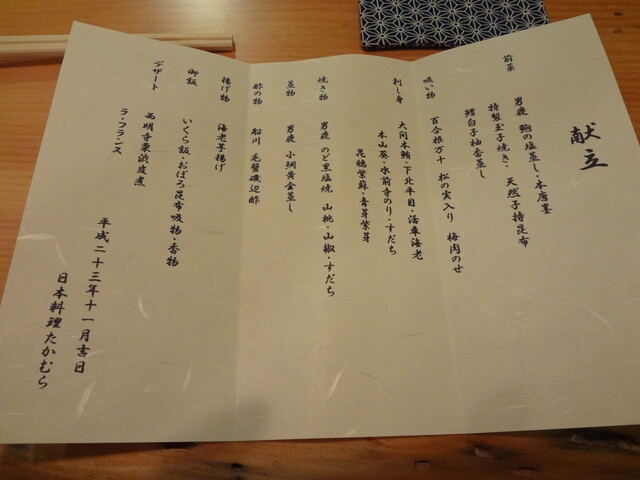 献立
前菜
男鹿 鮑の塩蒸し・本唐墨
特製玉子焼き・天然子持昆布
鱈白子柚香蒸し
吸い物
百合根万十 松の実入り 梅肉のせ
刺し身
大間本鮪・下北平目・活車海老
本山葵・水前寺のり・すだち
花穂紫蘇・青芽紫芽
焼き物
男鹿 のど黒塩焼 山桃・山椒・すだち
蒸物
男鹿 小鯛黄金蒸し
酢の物
松川 毛蟹磯辺酢
揚げ物
海老芋揚げ
御飯
いくら飯・おぼろ昆布吸物・香物
デザート
西明寺栗渋皮煮
ラ・フランス
平成二十三年十一月吉日
日本料理たかむら